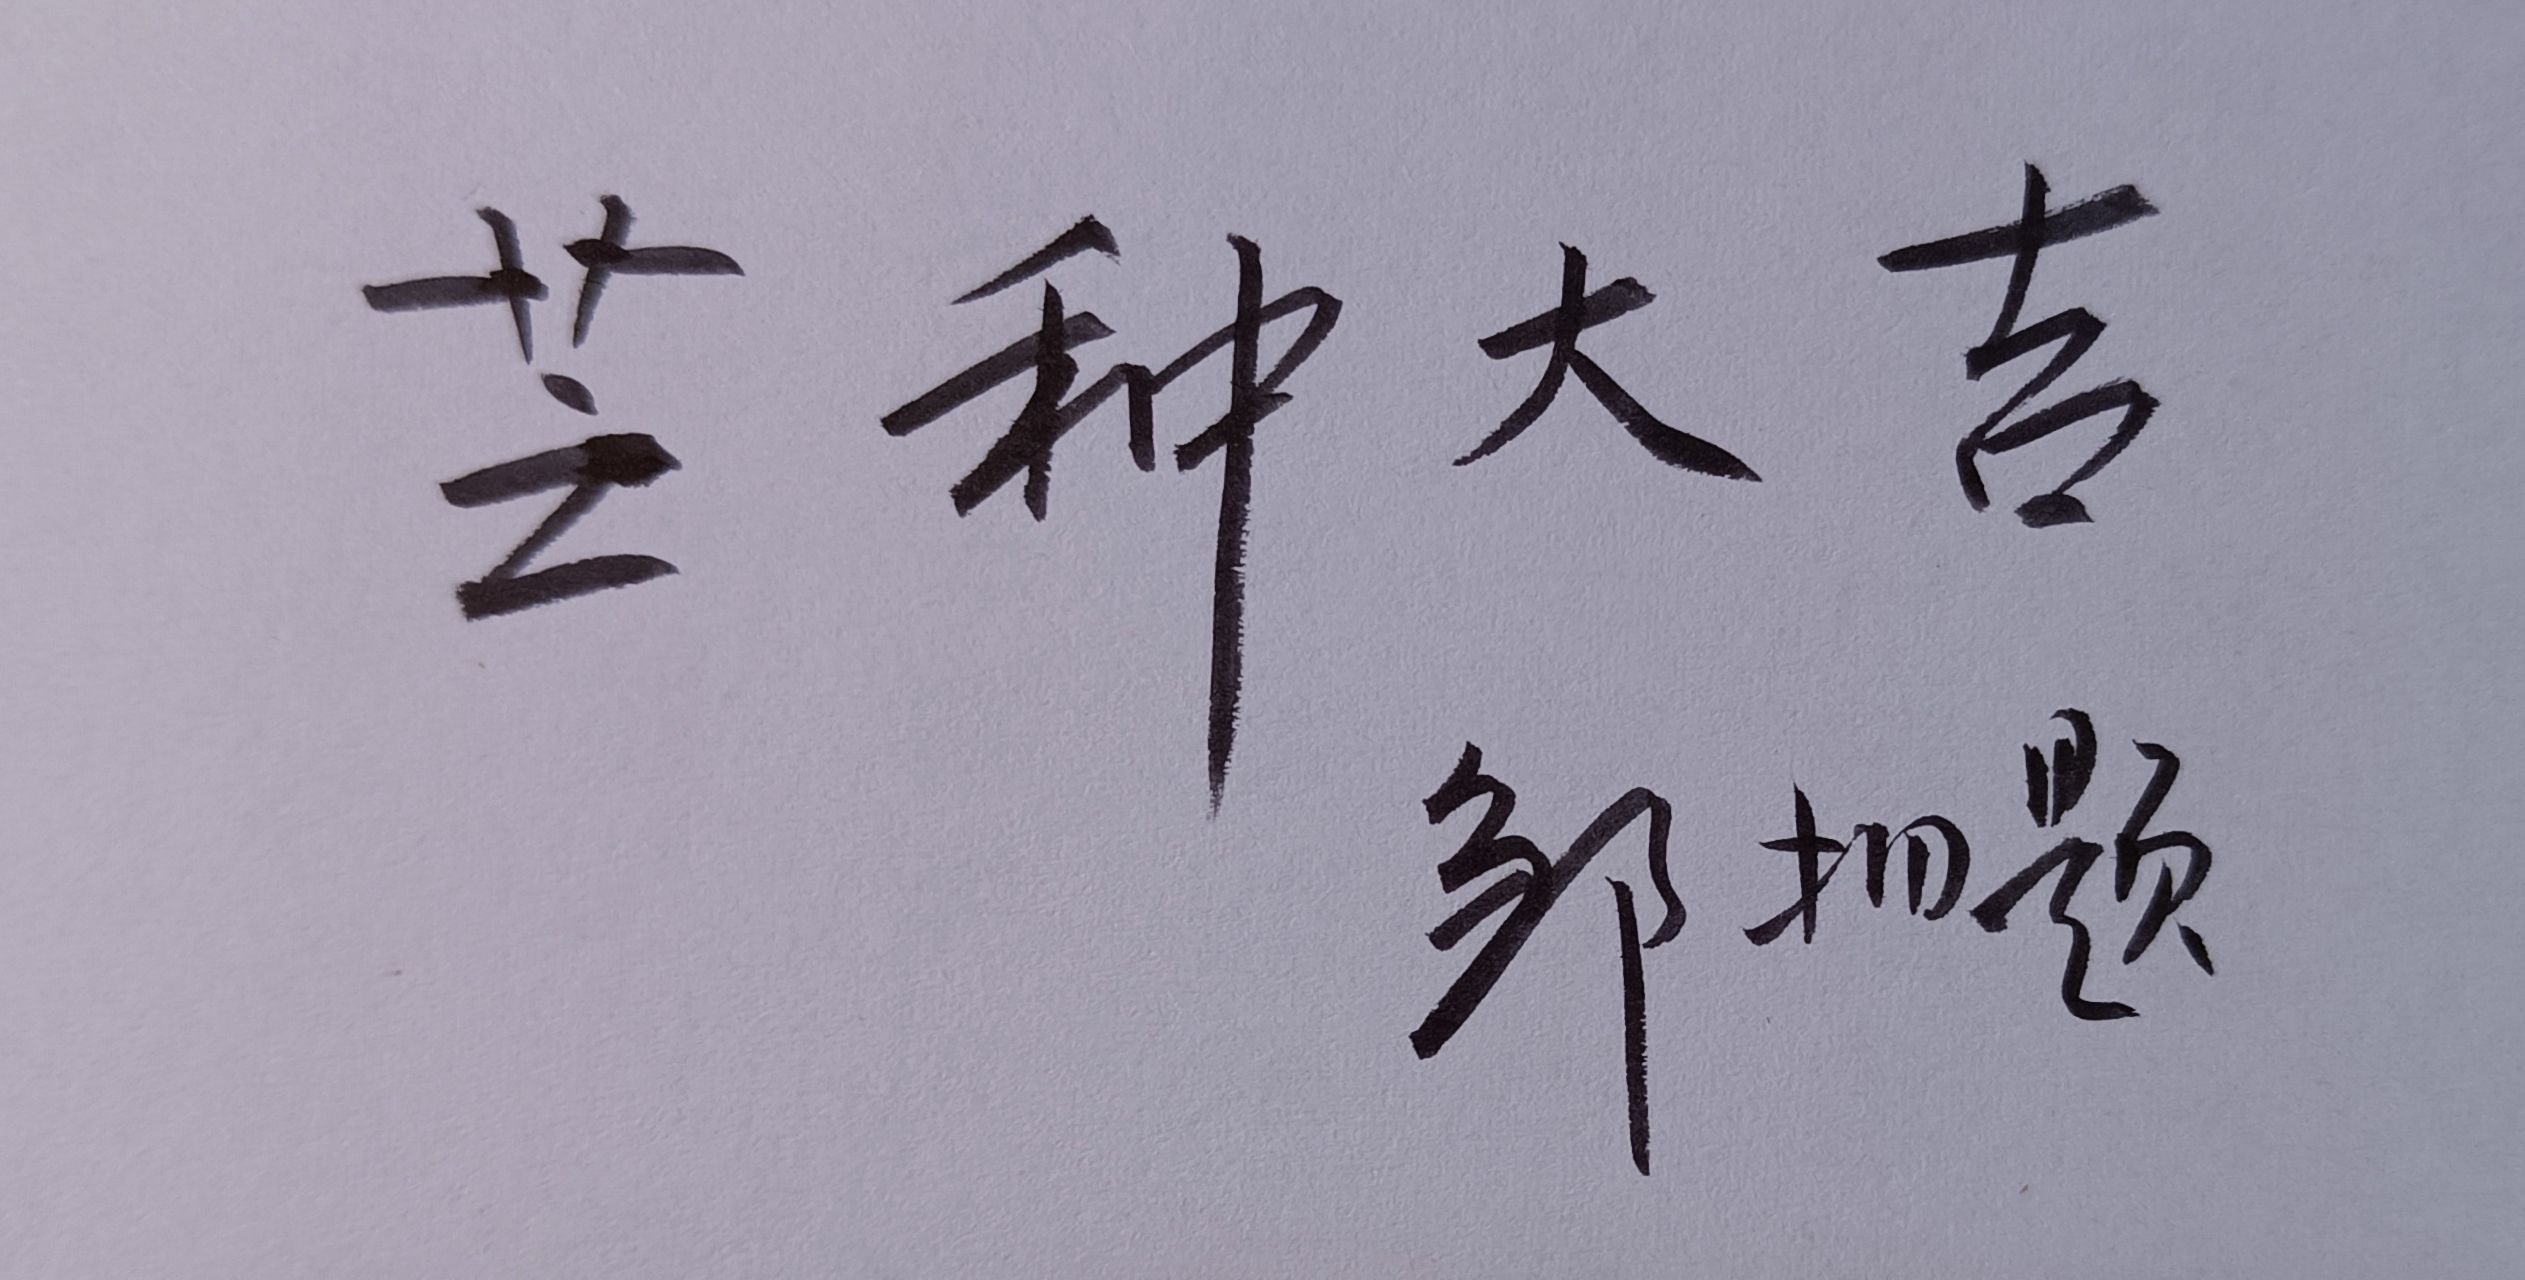 芒种大吉
邹题